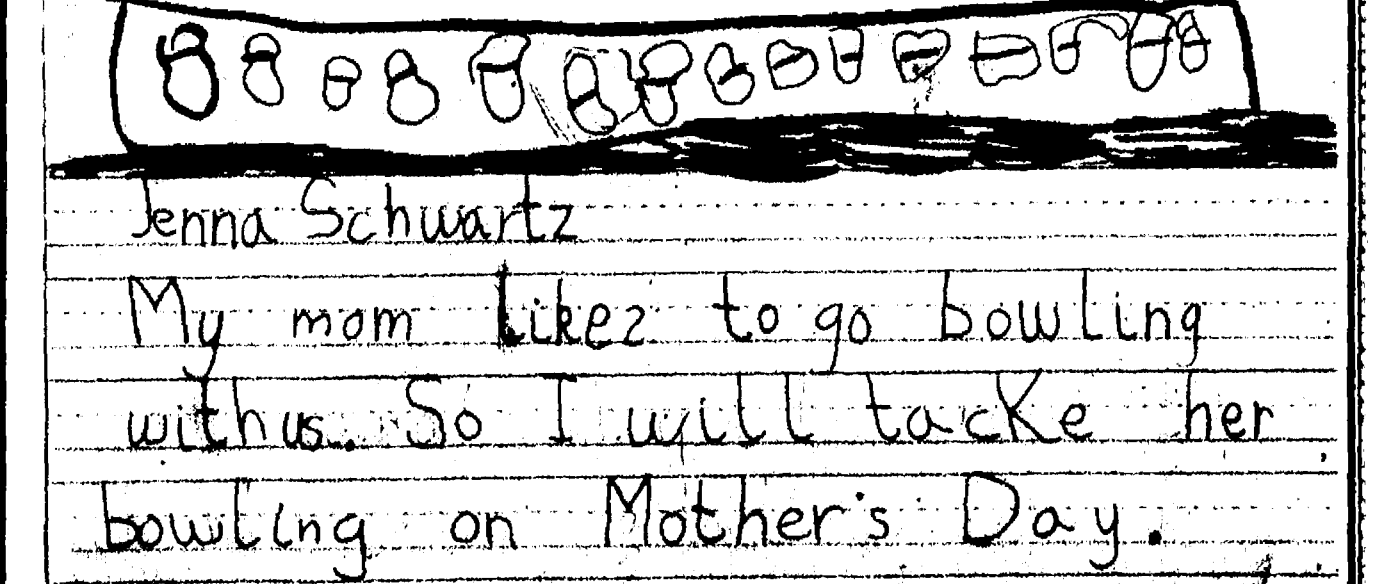 Jenna Schwartz
My mom likes to go bowling
with us. So I will tacke her
bowling on Mother's Day.